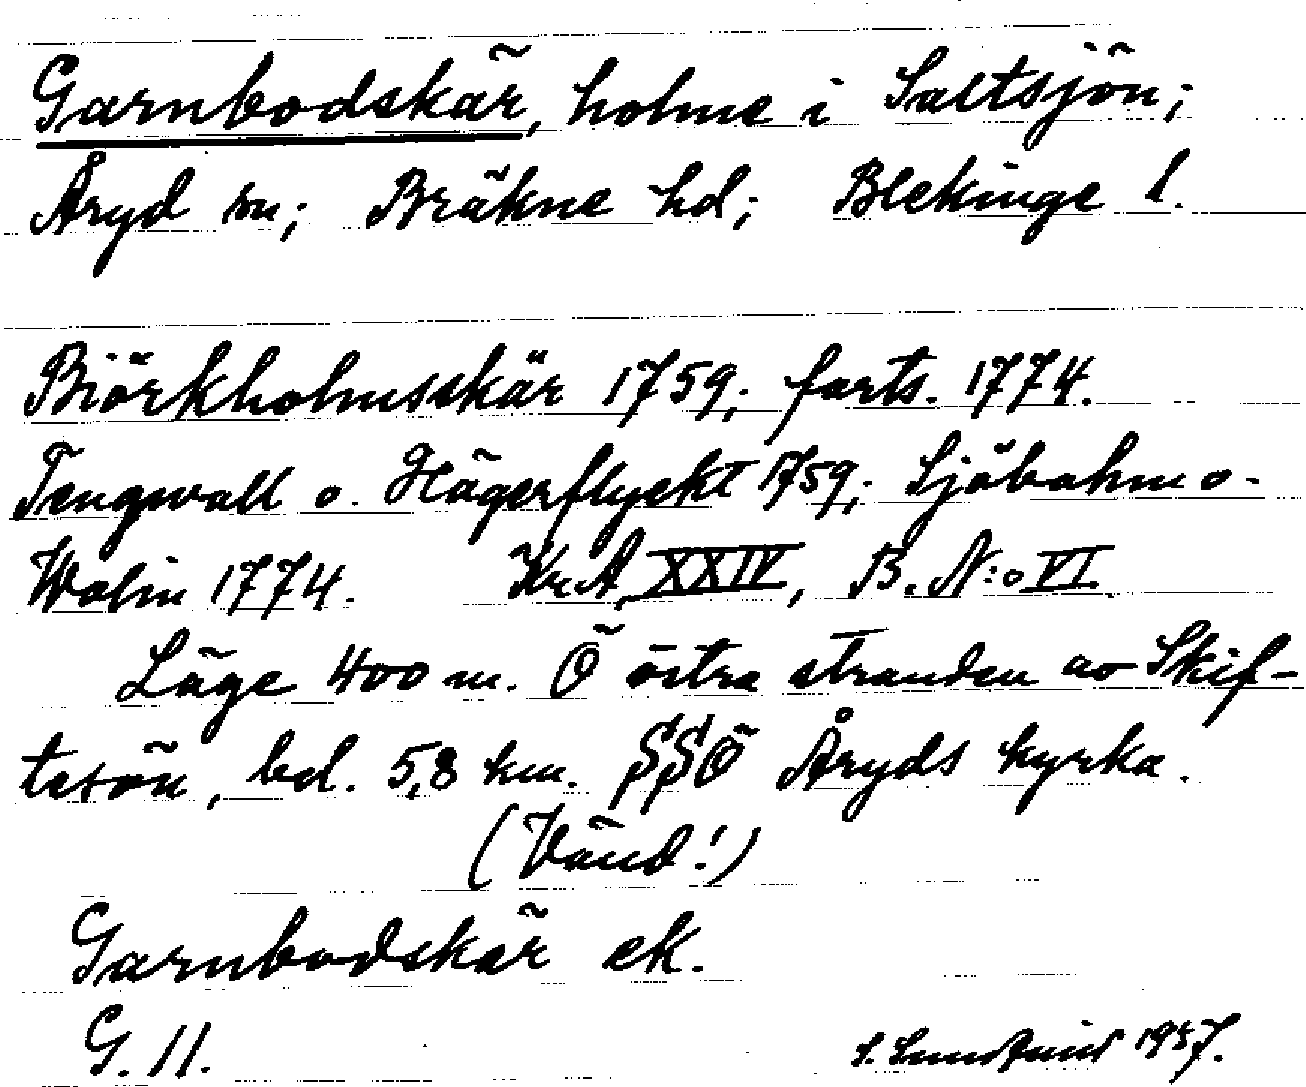 Garnbodskär, holme i Saltsjön;
Åryd sn; Bräkne hd; Blekinge l.
Biörkholmsskär 1759; forts. 1774.
Tengwall o. Hägerflyckt 1759; Sjöbohm o.
Wolin 1774. Kr.A, XXIV, B. N:o VI.
Läge 400 m. Ö östra stranden av Skif-
tesön, bel. 5,8 km. SSÖ Åryds kyrka.
(Vänd!)
Garnbodskär ek.
G. 11.
S.